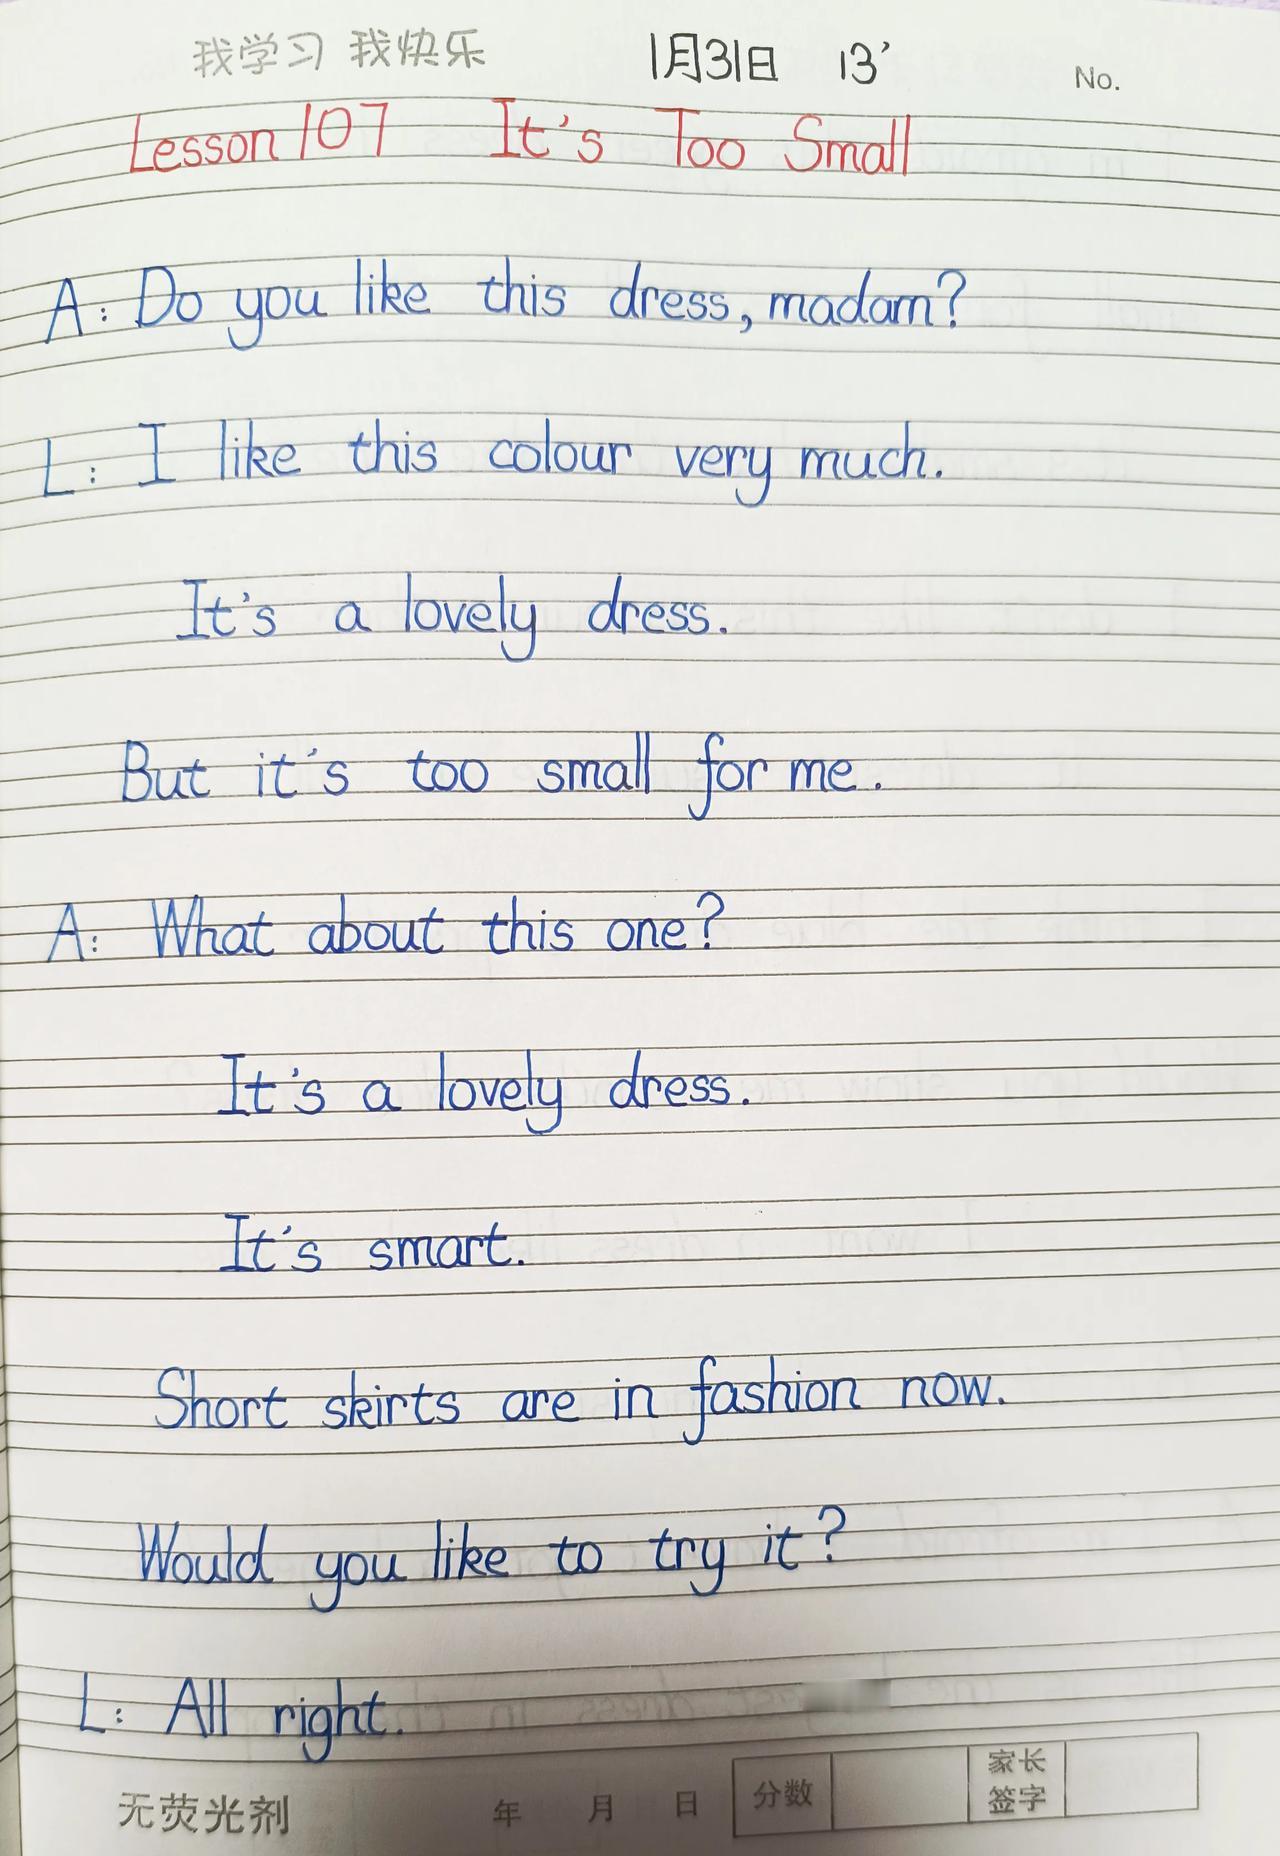 我学习 我快乐 1月31日 13' No.
Lesson 107 It's Too Small
A: Do you like this dress, madam?
L: I like this colour very much.
It's a lovely dress.
But it's too small for me.
A: What about this one?
It's a lovely dress.
It's smart.
Short skirts are in fashion now.
Would you like to try it?
L: All right.
无荧光剂 年 月 日 分数 家长签字